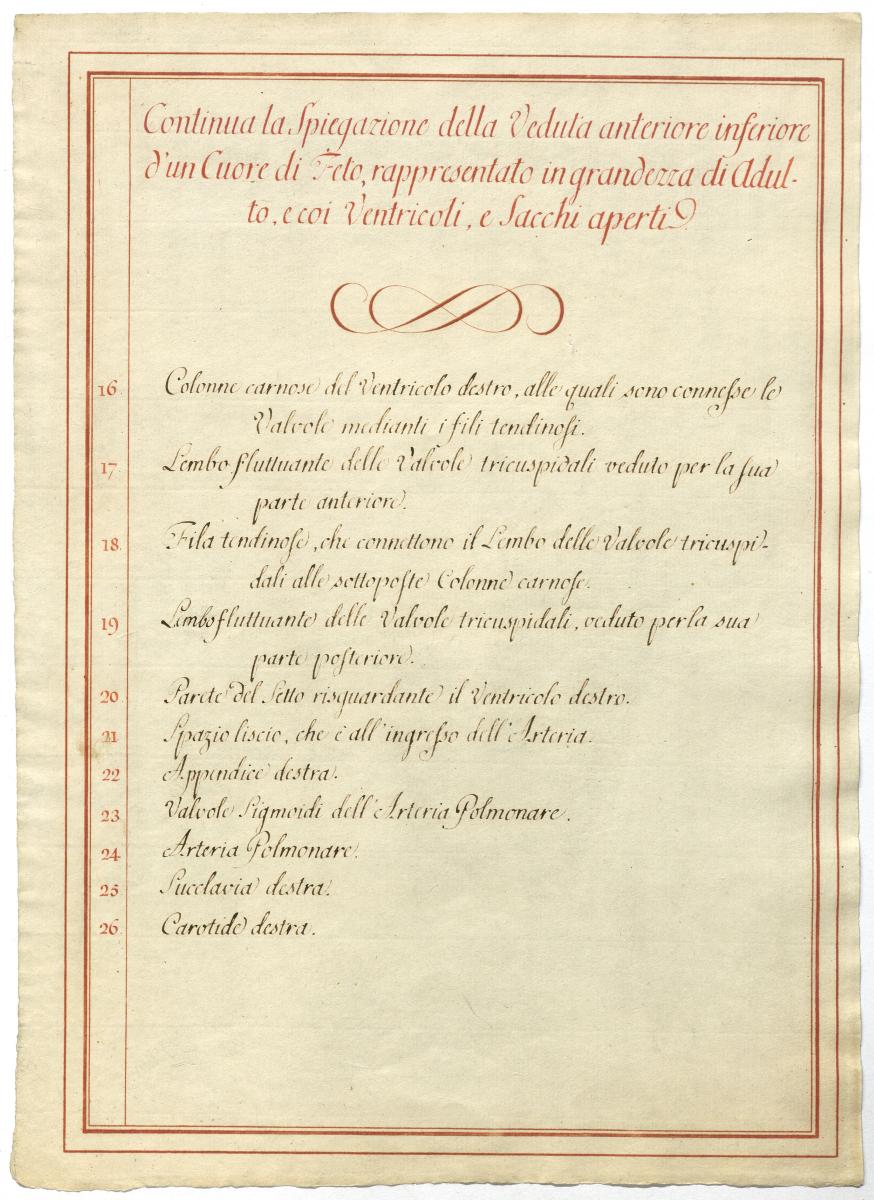 Continua la Spiegazione della Veduta anteriore inferiore
d'un Cuore di Feto, rappresentato in grandezza di Adul-
to, e coi Ventricoli, e Sacchi aperti.
16. Colonne carnose del Ventricolo destro, alle quali sono conneſse le
Valvole medianti i fili tendinoſi.
17. Lembo fluttuante delle Valvole tricuspidali veduto per la ſua
parte anteriore.
18. Fila tendinoſe, che connettono il Lembo delle Valvole tricuspi-
dali alle sottopoſte Colonne carnoſe.
19. Lembo fluttuante delle Valvole tricuspidali, veduto per la sua
parte poſteriore.
20. Parete del Setto risguardante il Ventricolo destro.
21. Spazio liscio, che è all'ingreſso dell'Arteria.
22. Appendice destra.
23. Valvole Sigmoidi dell'Arteria Polmonare.
24. Arteria Polmonare.
25. Succlavia destra.
26. Carotide destra.